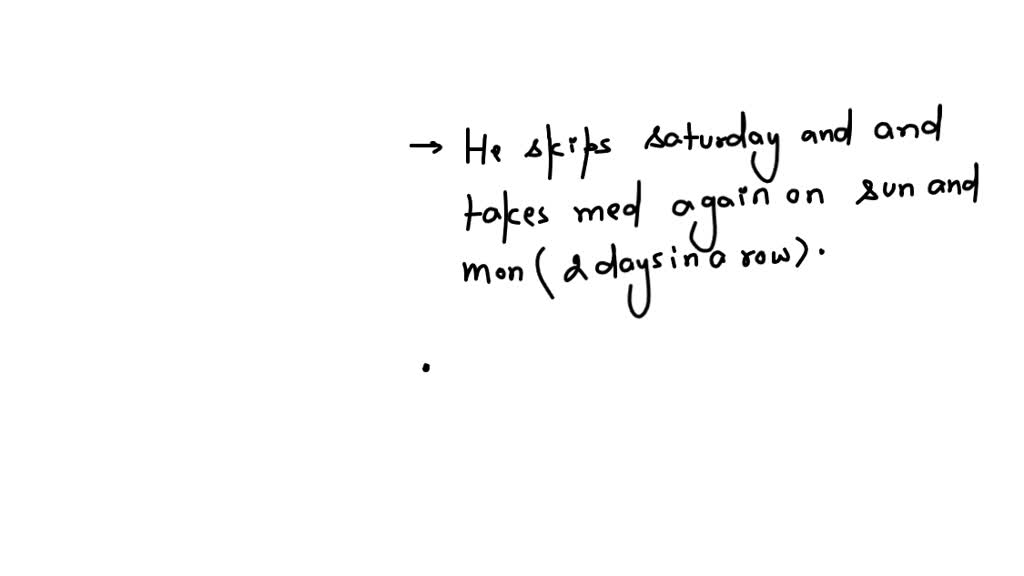 → He skips saturday and and
takes med again on sun and
mon (2 days in a row).
.